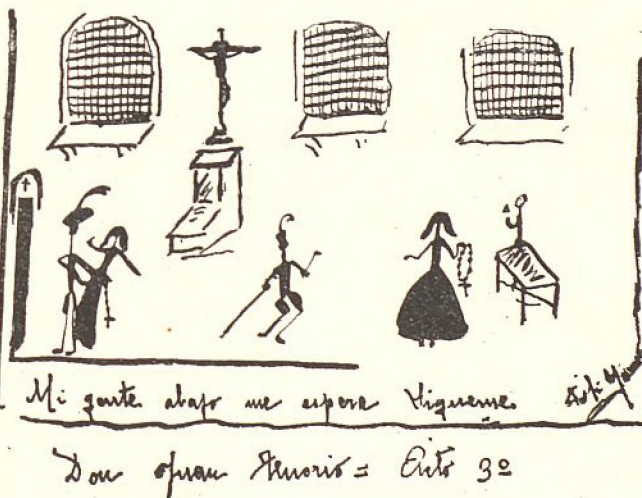 Mi gente abajo me espera Sigueme
Don Juan Tenorio = Acto 3º